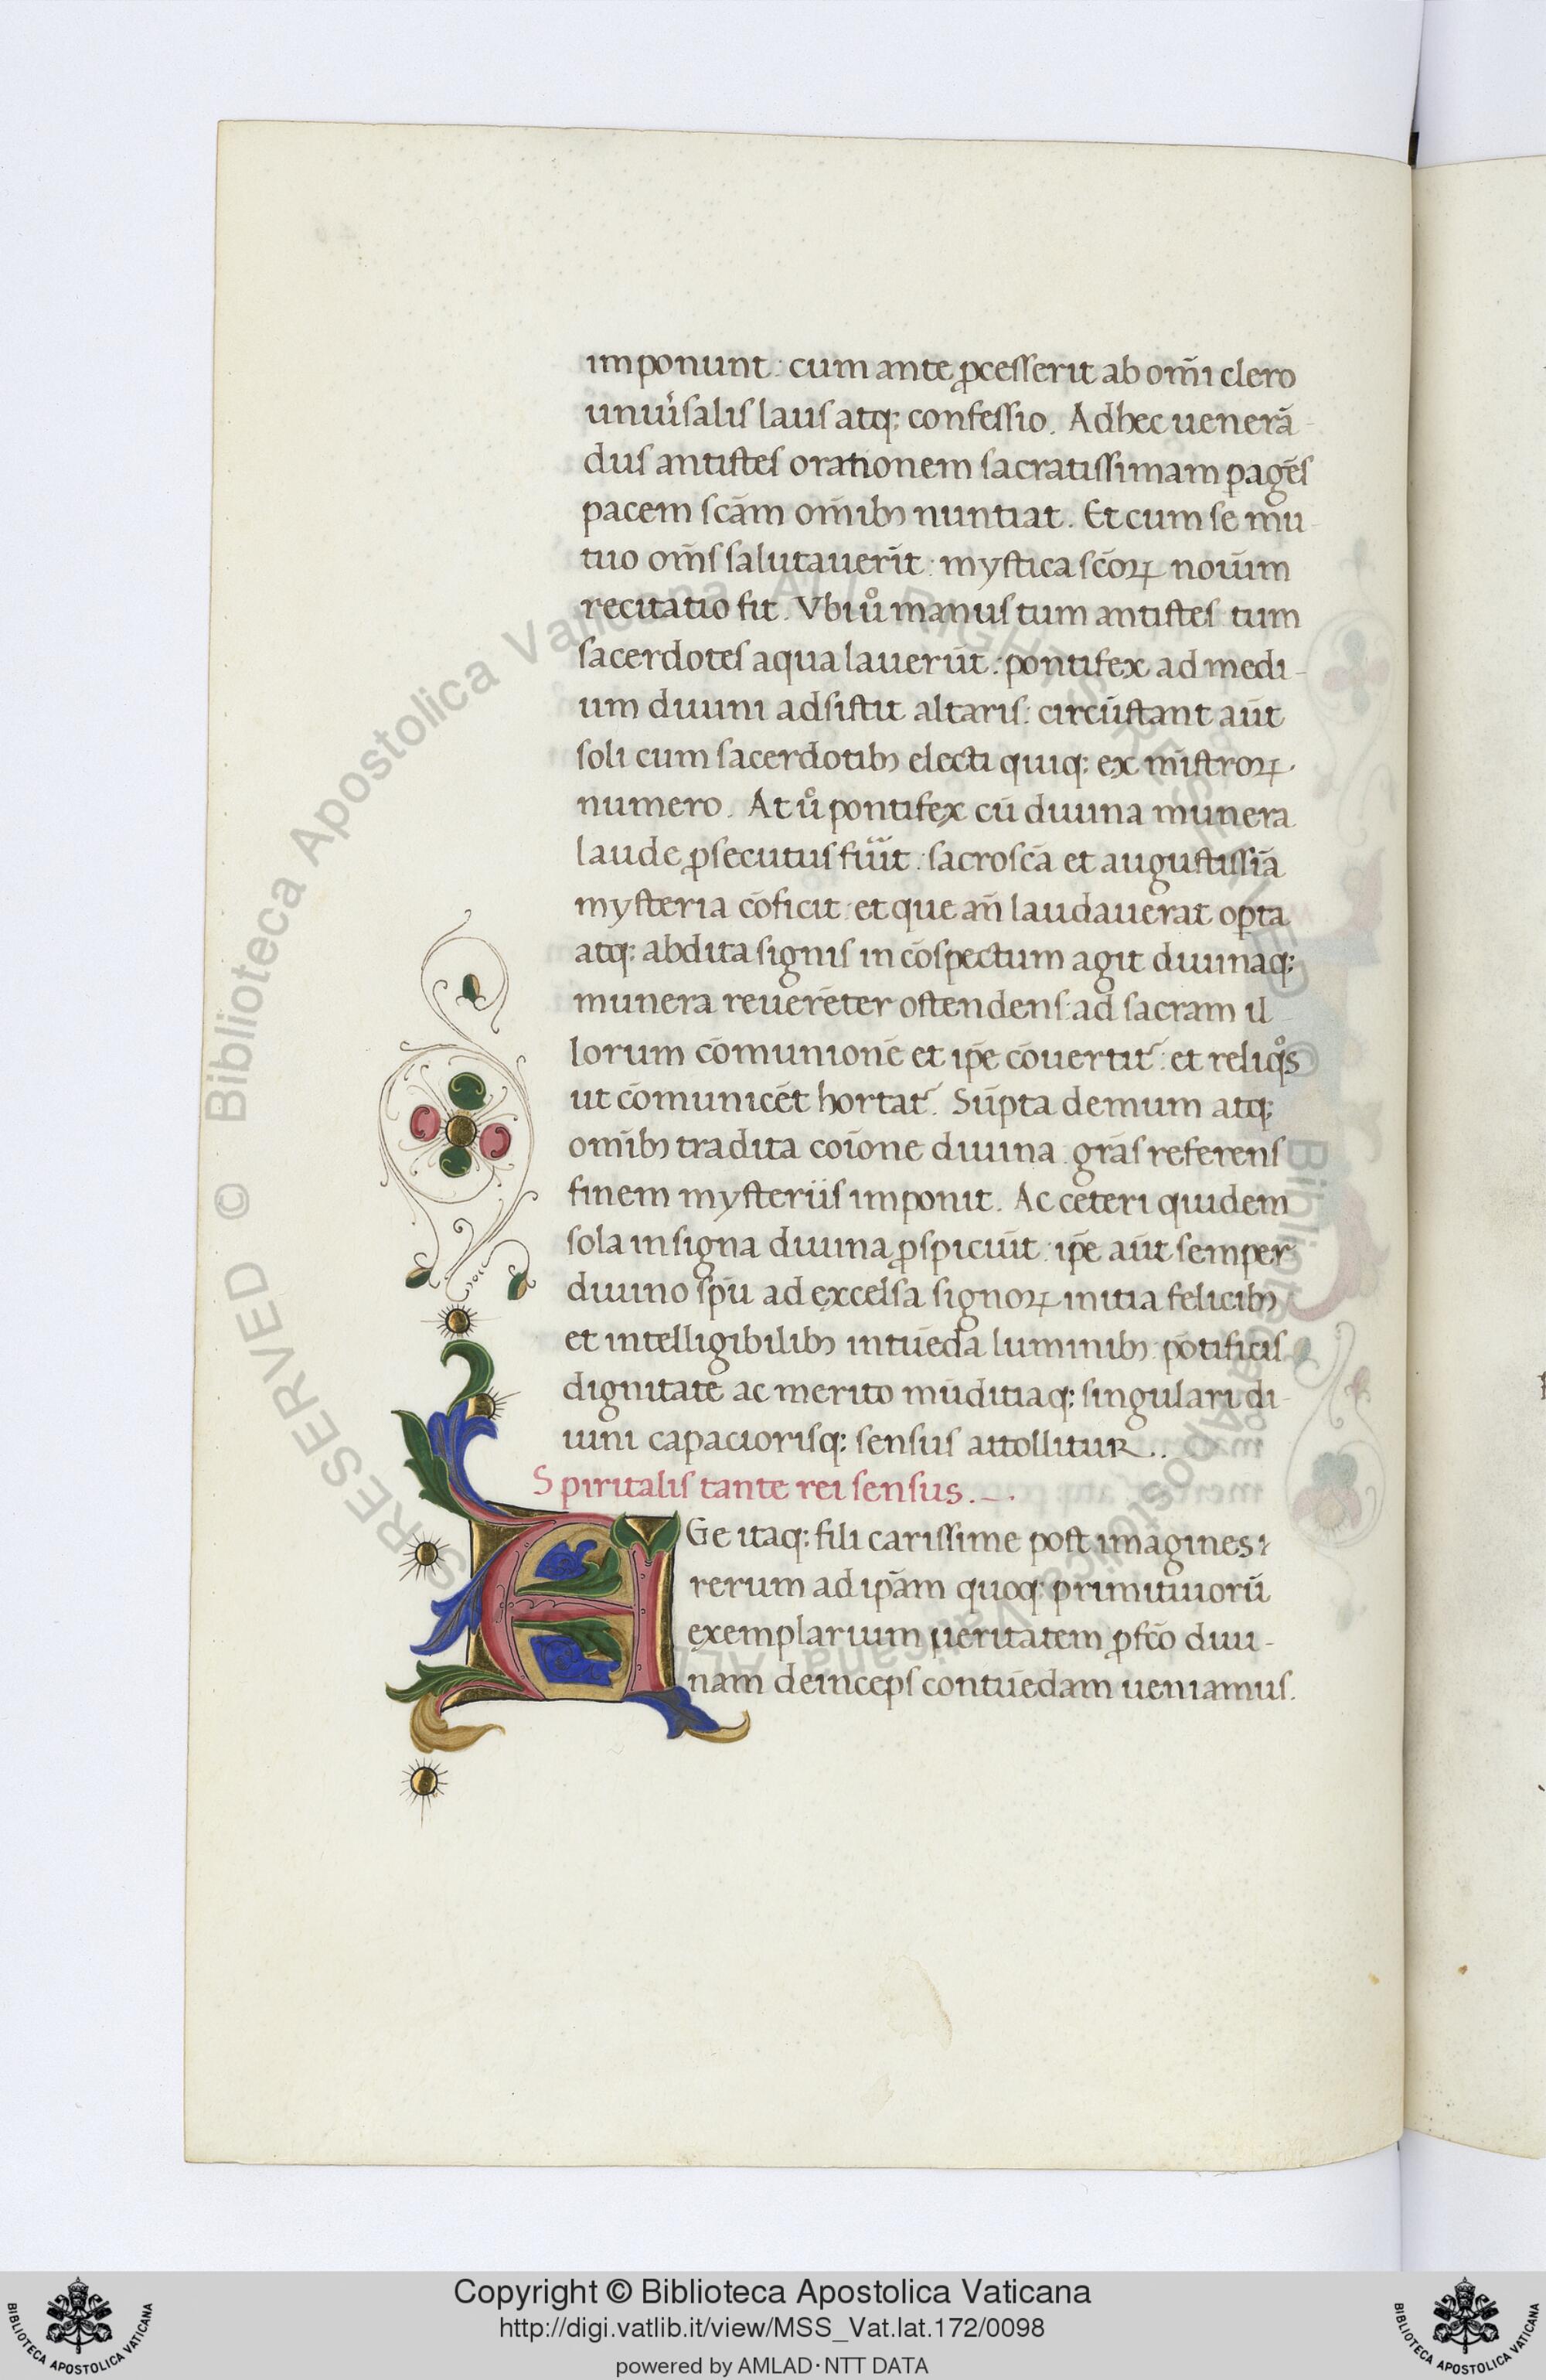 imponunt: cum ante ꝓcesserit ab om̄i clero
uniuͥsalis laus atq; confessio. Adhec uenerā-
dus antistes orationem sacratissimam pagēs
pacem scām om̄ibꝫ nuntiat. Et cum se mu-
tuo om̄s salutauerīt: mystica scōꝝ nouūm
recitatio fit. Vbi uͦ manus tum antistes tum
sacerdotes aqua lauerūt: pontifex ad medi-
um diuini adsistit altaris: circūstant aūt
soli cum sacerdotibꝫ electi quiq; ex mīstroꝝ
numero. At uͦ pontifex cū diuina munera
laude ꝓsecutus fūit: sacroscā et augustissīa
mysteria cōficit: et que an̄ laudauerat oꝑta
atq; abdita signis in cōspectum agit diuinaq;
munera reuerēter ostendens: ad sacram il-
lorum cōmunionē et ip̄e cōuertit᷑: et reliqͦs
ut cōmunicēt hortat᷑. Sūpta demum atq;
om̄ibꝫ tradita coīone diuina: grās referens
finem mysteriis imponit. Ac ceteri quidem
sola insigna diuina ꝓspiciūt: ip̄e aūt semper
diuino spū ad excelsa signoꝝ initia felicibꝫ
et intelligibilibꝫ intuēda luminibꝫ: pōtificis
dignitate ac merito mūditiaq; singulari di-
uini capaciorisq; sensus attollitur..
Spiritalis tante rei sensus.
AGe itaq; fili carissime post imagines:
rerum ad ip̄am quoq; primitiuorū
exemplarium ueritatem ꝓfc̄o diui-
nam deinceps contuēdam ueniamus.
© Biblioteca Apostolica Vaticana
Copyright © Biblioteca Apostolica Vaticana
http://digi.vatlib.it/view/MSS_Vat.lat.172/0098
powered by AMLAD·NTT DATA
BIBLIOTECA APOSTOLICA VATICANA
BIBLIOTECA APOSTOLICA VATICANA